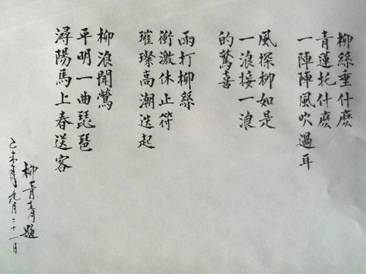 柳絲垂什麼
青蓮托什麼
一陣陣風吹過耳
風探柳如是
一浪接一浪
的驚喜
雨打柳絲
衝激休止符
璀璨高潮迭起
柳浪聞鶯
平明一曲琵琶
潯陽馬上春送客
柳青青題
九月二十一日